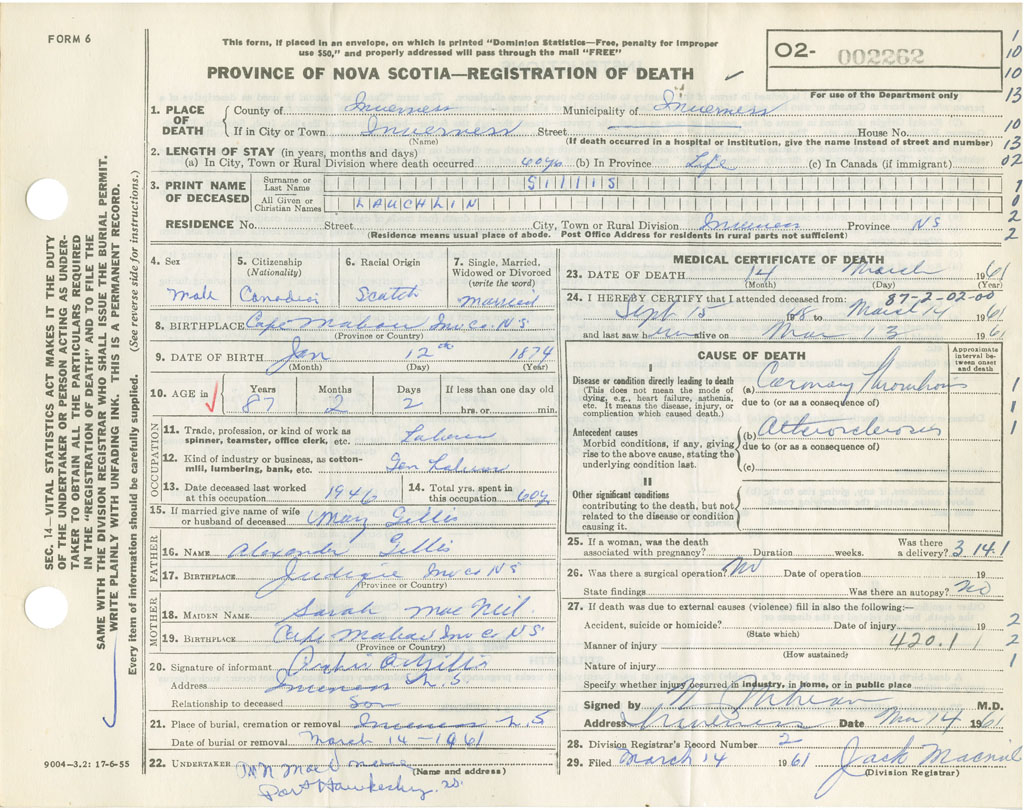 FORM 6
This form, if placed in an envelope, on which is printed "Dominion Statistics—Free, penalty for improper
use $50," and properly addressed will pass through the mail "FREE"
O2- 002262
For use of the Department only
PROVINCE OF NOVA SCOTIA—REGISTRATION OF DEATH
1. PLACE OF DEATH
County of Inverness Municipality of Inverness
If in City or Town Inverness Street House No.
(Name) (If death occurred in a hospital or institution, give the name instead of street and number)
2. LENGTH OF STAY (in years, months and days)
(a) In City, Town or Rural Division where death occurred 60yb (b) In Province Life (c) In Canada (if immigrant)
3. PRINT NAME OF DECEASED
Surname or Last Name
All Given or Christian Names LAUCHLIN
RESIDENCE No. Street City, Town or Rural Division Inverness Province NS
(Residence means usual place of abode. Post Office Address for residents in rural parts not sufficient)
4. Sex Male
5. Citizenship (Nationality)
6. Racial Origin Scotch
7. Single, Married, Widowed or Divorced (write the word) Married
8. BIRTHPLACE Cape Mabou Inv Co. NS
(Province or Country)
9. DATE OF BIRTH Jan 12th 1874
(Month) (Day) (Year)
10. AGE in Years 87 Months 2 Days 2 If less than one day old hrs. or min.
OCCUPATION
11. Trade, profession, or kind of work as spinner, teamster, office clerk, etc. Laborer
12. Kind of industry or business, as cotton-mill, lumbering, bank, etc. Gen Laborer
13. Date deceased last worked at this occupation 1946
14. Total yrs. spent in this occupation 60y
15. If married give name of wife or husband of deceased Mary Gillis
FATHER
16. NAME Alexander Gillis
17. BIRTHPLACE Judique Inv co NS
(Province or Country)
MOTHER
18. MAIDEN NAME Sarah Mac Neil
19. BIRTHPLACE Cape Mabou Inv co NS
(Province or Country)
20. Signature of informant Gillis
Address Inverness N.S.
Relationship to deceased Son
21. Place of burial, cremation or removal Inverness N.S
Date of burial or removal March 14-1961
22. UNDERTAKER
(Name and address)
Port Hawkesby
MEDICAL CERTIFICATE OF DEATH
23. DATE OF DEATH 14 March 1961
(Month) (Day) (Year)
87-2-02-00
24. I HEREBY CERTIFY that I attended deceased from:
Sept 15 to March 14 1961
and last saw him alive on Mar 13 1961
CAUSE OF DEATH
Approximate interval between onset and death
I
Disease or condition directly leading to death
(This does not mean the mode of dying, e.g., heart failure, asthenia, etc. It means the disease, injury, or complication which caused death.)
(a) Coronary Thrombosis
due to (or as a consequence of)
Antecedent causes
Morbid conditions, if any, giving rise to the above cause, stating the underlying condition last.
(b) Atherosclerosis
due to (or as a consequence of)
(c)
II
Other significant conditions
contributing to the death, but not related to the disease or condition causing it.
25. If a woman, was the death associated with pregnancy? Duration weeks. Was there a delivery? 3 14.1
26. Was there a surgical operation? No Date of operation 19
State findings Was there an autopsy? No
27. If death was due to external causes (violence) fill in also the following:—
Accident, suicide or homicide? Date of injury 19
(State which)
Manner of injury 420.1
(How sustained)
Nature of injury
Specify whether injury occurred in industry, in home, or in public place
Signed by M.D.
Address Inverness Date Mar 14 1961
28. Division Registrar's Record Number 2
29. Filed March 14 1961 Jack Macneil
(Division Registrar)
SEC. 14—VITAL STATISTICS ACT MAKES IT THE DUTY
OF THE UNDERTAKER OR PERSON ACTING AS UNDER-
TAKER TO OBTAIN ALL THE PARTICULARS REQUIRED
IN THE "REGISTRATION OF DEATH" AND TO FILE THE
SAME WITH THE DIVISION REGISTRAR WHO SHALL ISSUE THE BURIAL PERMIT.
WRITE PLAINLY WITH UNFADING INK. THIS IS A PERMANENT RECORD.
Every item of information should be carefully supplied. (See reverse side for instructions.)
9004—3.2: 17-6-55
1
10
10
13
10
13
02
2
2
1
1
1
2
2
1